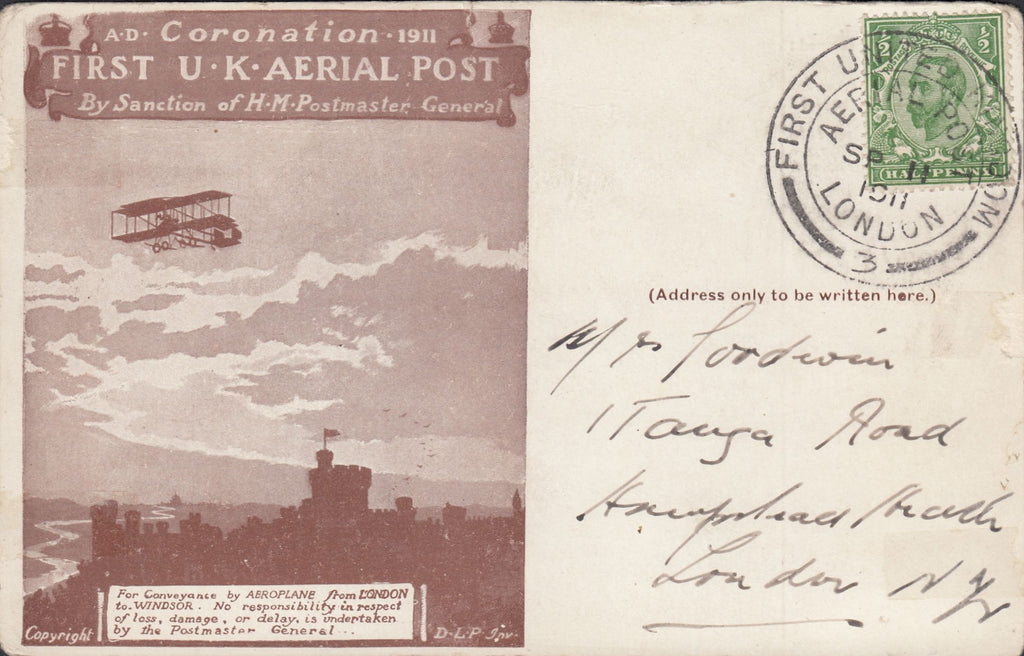 A·D· Coronation · 1911
FIRST U·K·AERIAL POST
By Sanction of H·M·Postmaster General
For Conveyance by AEROPLANE from LONDON
to WINDSOR. No responsibility in respect
of loss, damage, or delay, is undertaken
by the Postmaster General...
Copyright
D·L·P Inv·
½ ½
HALFPENNY
FIRST UNITED KINGDOM
AERIAL POST
SP 11
1911
LONDON
3
(Address only to be written here.)
Mrs Goodwin
Road
Hampstead Heath
London